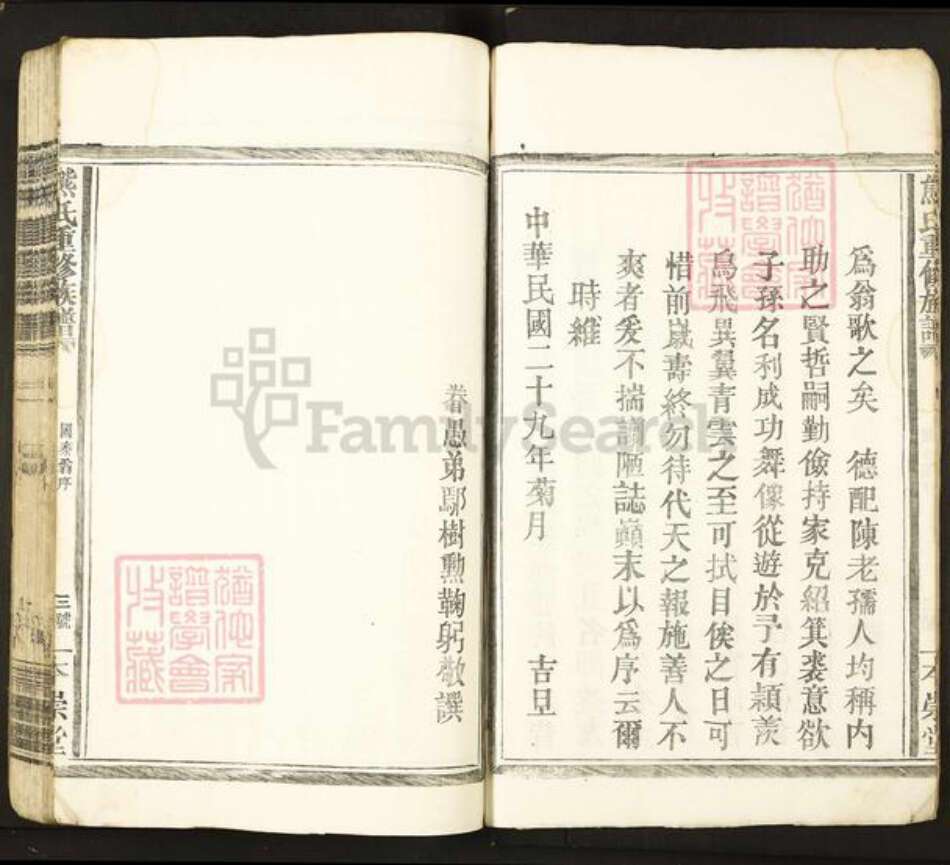 爲翁歌之矣　德配陳老孺人均稱內
助之賢哲嗣勤儉持家克紹箕裘意欲
子孫名利成功舞像從遊於予有穎羨
鳥飛異翼青雲之至可拭目俟之日可
惜前歲壽終勿待代天之報施善人不
爽者爰不揣謭陋誌巔末以爲序云爾
時維
中華民國二十九年菊月　吉旦
眷愚弟鄢樹勲鞠躬敬譔
熊氏重修族譜
國泰翁序
三號
一本崇堂
熊氏重修族譜
一本崇堂
猶他家譜學會收藏
猶他家譜學會收藏
FamilySearch